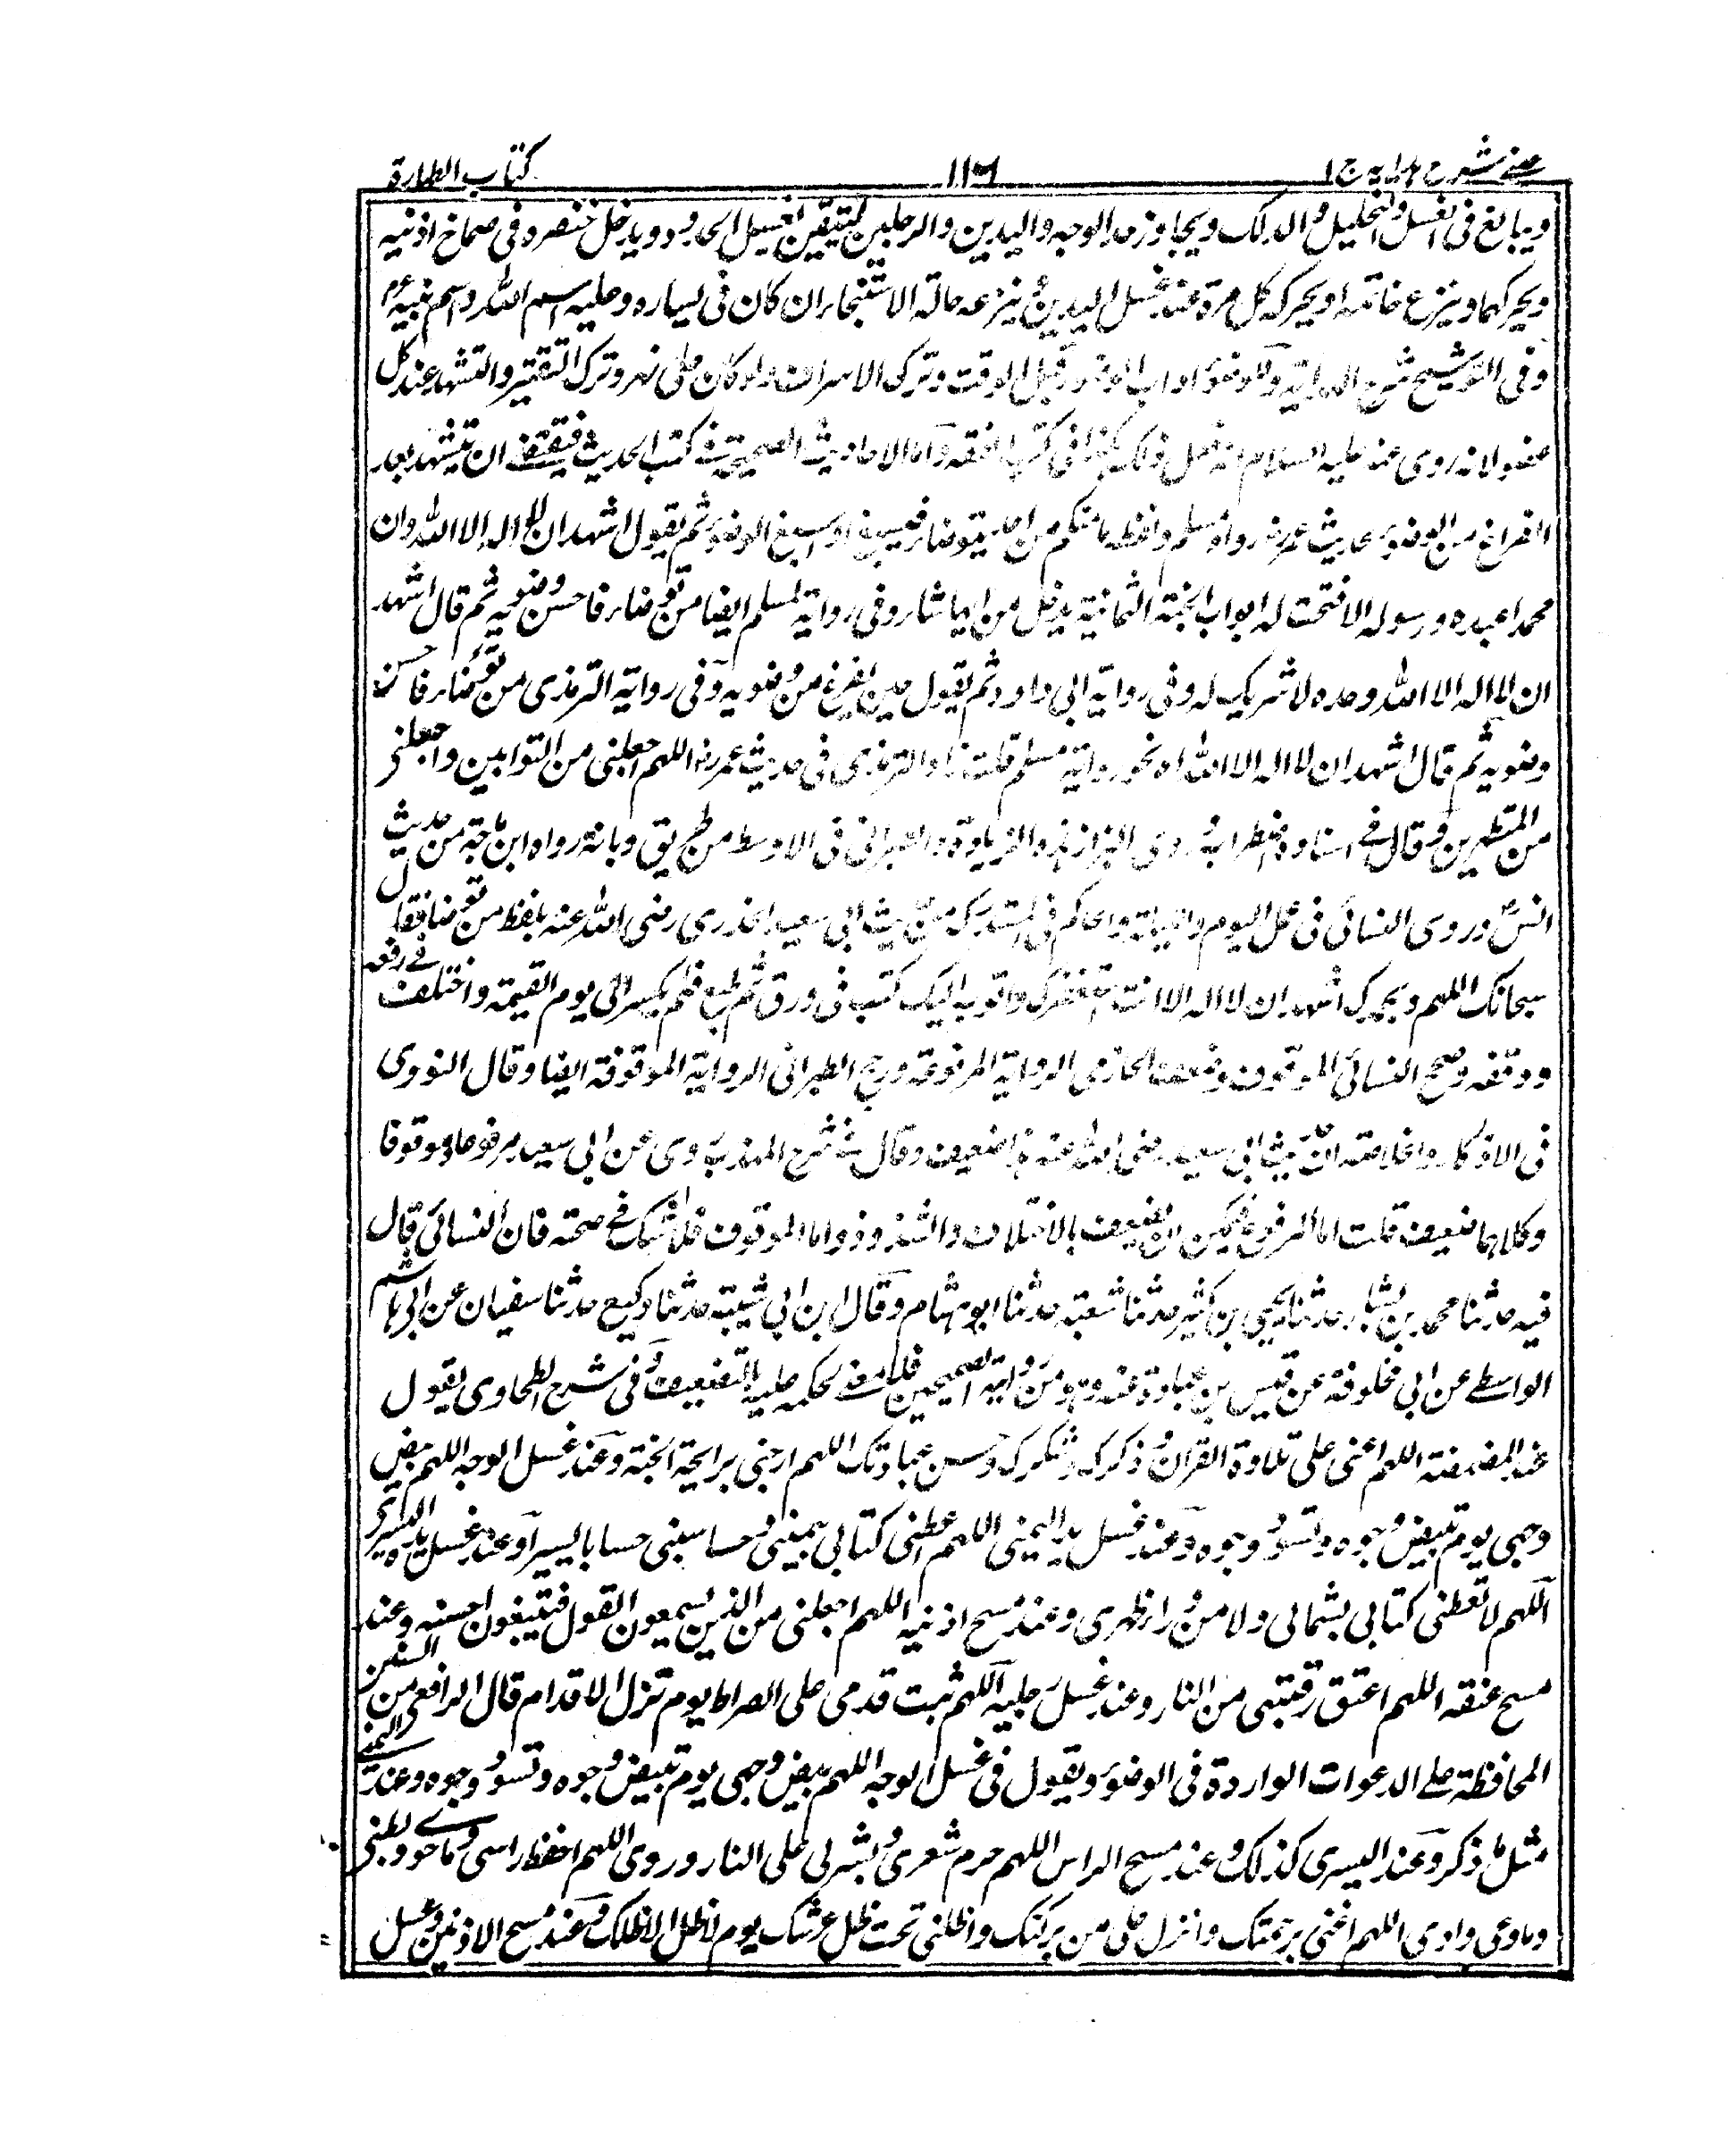 عينى شرح هدايه ج ١ ١١٦ كتاب الطهارة
ويبالغ فى الغسل والتخليل والدلك ويجاوز حد الوجه واليدين والرجلين ليتيقن بغسل الحدود ويدخل خنصره فى صماخ اذنيه
ويحركهما وينزع خاتمه او يحركه كل مرة عند غسل اليدين ثم ينزعه حالة الاستنجاء ان كان فى يساره وعليه اسم الله واسم نبيه
وفى التوشيح شرح الهداية والوضوء اداب الوضوء قبل الوقت وترك الاسراف ولو كان على نهر وترك التقتير والتشهد عند كل
عضو لانه روى عنه عليه السلام انه فعل ذلك كذا فى كتب الفقه واما الاحاديث الصحيحة فى كتب الحديث فيقتضى ان يتشهد بعد
الفراغ من الوضوء حديث عمر رضـ رواه مسلم ولفظه ما منكم من احد يتوضأ فيسبغ او اسبغ الوضوء ثم يقول اشهد ان لا اله الا الله وان
محمدا عبده ورسوله الا فتحت له ابواب الجنة الثمانية يدخل من ايها شاء وفى رواية لمسلم ايضا من توضأ فاحسن وضوءه ثم قال اشهد
ان لا اله الا الله وحده لا شريك له وفى رواية ابى داود ثم يقول حين يفرغ من وضوءه وفى رواية الترمذى من توضأ فاحسن
وضوءه ثم قال اشهد ان لا اله الا الله اه نحو رواية مسلم قلت زاد الترمذى فى حديث عمر رضـ اللهم اجعلنى من التوابين واجعلنى
من المتطهرين وقال فى اسناده اضطراب وروى البزار هذه الزيادة والطبرانى فى الاوسط من طريق ثوبان ورواه ابن ماجة من حديث
انس وروى النسائى فى عمل اليوم والليلة والحاكم فى المستدرك من حديث ابى سعيد الخدرى رضى الله عنه بلفظ من توضأ فقال
سبحانك اللهم وبحمدك اشهد ان لا اله الا انت استغفرك واتوب اليك كتب فى ورق ثم طبع فلم يكسر الى يوم القيمة واختلف فى رفعه
ووقفه وصحح النسائى الموقوف وضعف الحازمى الرواية المرفوعة ورجح الطبرانى الرواية الموقوفة ايضا وقال النووى
فى الاذكار والخلاصة ان حديث ابى سعيد رضى الله عنه هذا ضعيف وقال فى شرح المهذب روى عن ابى سعيد مرفوعا وموقوفا
وكلاهما ضعيف قلت اما المرفوع فيمكن ان يضعف بالاختلاف والشذوذ واما الموقوف فلا شك فى صحته فان النسائى قال
فيه حدثنا محمد بن بشار حدثنا يحيى بن كثير حدثنا شعبة حدثنا ابو هشام وقال ابن ابى شيبة حدثنا وكيع حدثنا سفيان عن ابى هاشم
الواسطى عن ابى مخلوفة عن قيس بن عبادة عنه وهو من رواية الصحيحين فلا معنى لحكمه عليه بالتضعيف وفى شرح الطحاوى يقول
عند المضمضة اللهم اعنى على تلاوة القران وذكرك وشكرك وحسن عبادتك اللهم ارحنى برايحة الجنة وعند غسل الوجه اللهم بيض
وجهى يوم تبيض وجوه وتسود وجوه وعند غسل يد اليمنى اللهم اعطنى كتابى بيمينى وحاسبنى حسابا يسيرا وعند غسل يده اليسرى
اللهم لا تعطنى كتابى بشمالى ولا من وراء ظهرى وعند مسح اذنيه اللهم اجعلنى من الذين يسمعون القول فيتبعون احسنه وعند
مسح عنقه اللهم اعتق رقبتى من النار وعند غسل رجليه اللهم ثبت قدمى على الصراط يوم تزل الاقدام قال الرافعى من السنن
المحافظة على الدعوات الواردة فى الوضوء ويقول فى غسل الوجه اللهم بيض وجهى يوم تبيض وجوه وتسود وجوه وعند اليمنى
مثل ما ذكر وعند اليسرى كذلك وعند مسح الراس اللهم حرم شعرى وبشرى على النار وروى اللهم احفظ راسى وما حوى وبطنى
وما وعى وادى اللهم اغثنى برحمتك وانزل على من بركتك واظلنى تحت ظل عرشك يوم لا ظل الا ظلك وعند مسح الاذنين وغسل